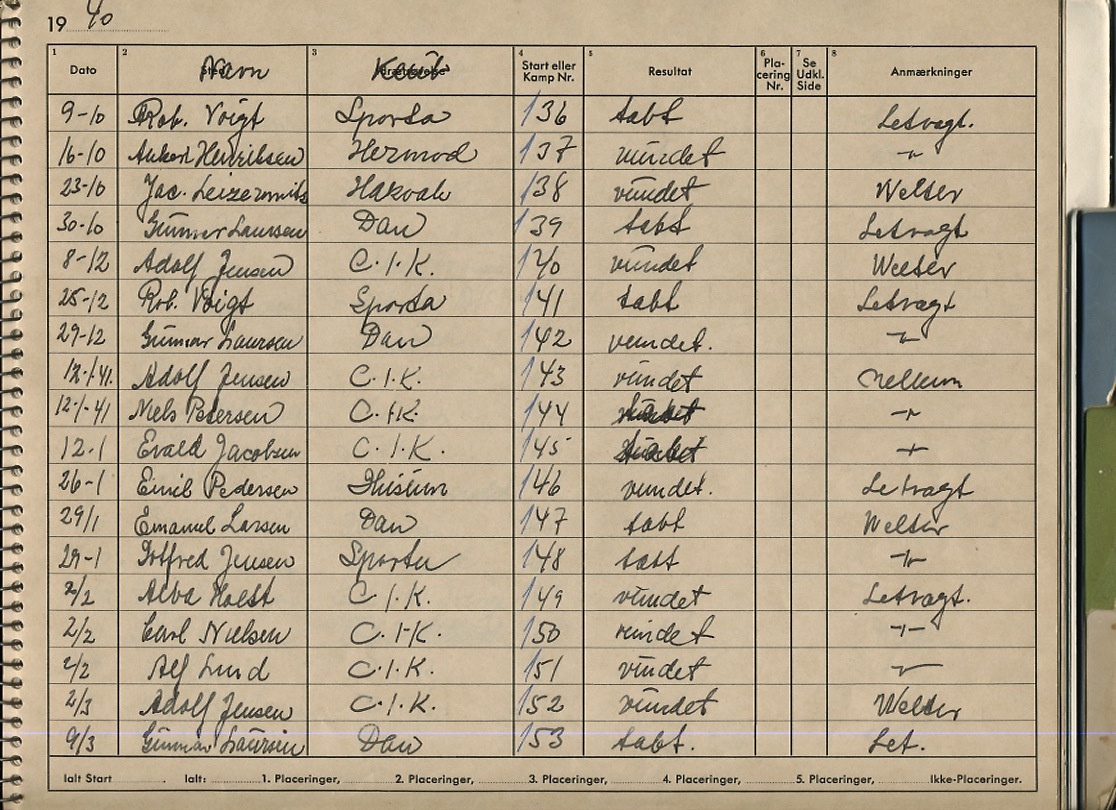 19 40
1 2 3 4 5 6 7 8
Dato Navn Klub Start eller Kamp Nr. Resultat Pla-cering Nr. Se Udkl. Side Anmærkninger
9-10 Rob. Voigt Sparta 136 tabt Letvægt.
16-10 Anker Henriksen Hermod 137 vundet -"-
23-10 Jac. Leizerowits Hakoah 138 vundet Welter
30-10 Gunnar Laursen Dan 139 tabt Letvægt
8-12 Adolf Jensen C.I.K. 140 vundet Welter
25-12 Rob. Voigt Sparta 141 tabt Letvægt
29-12 Gunnar Laursen Dan 142 vundet. -"-
12-1-41. Adolf Jensen C.I.K. 143 vundet Mellem
12-1-41 Niels Petersen C.I.K. 144 -"-
12-1 Evald Jacobsen C.I.K. 145 -"-
26-1 Emil Pedersen Husum 146 vundet. Letvægt
29/1 Emanuel Larsen Dan 147 tabt Welter
29-1 Gotfred Jensen Sparta 148 tabt -"-
2/2 Alba Holst C.I.K. 149 vundet Letvægt.
2/2 Carl Nielsen C.I.K. 150 vundet -"-
2/2 Alf Lund C.I.K. 151 vundet -"-
2/3 Adolf Jensen C.I.K. 152 vundet Welter
9/3 Gunnar Laursen Dan 153 tabt. Let.
Ialt Start Ialt: 1. Placeringer, 2. Placeringer, 3. Placeringer, 4. Placeringer, 5. Placeringer, Ikke-Placeringer.